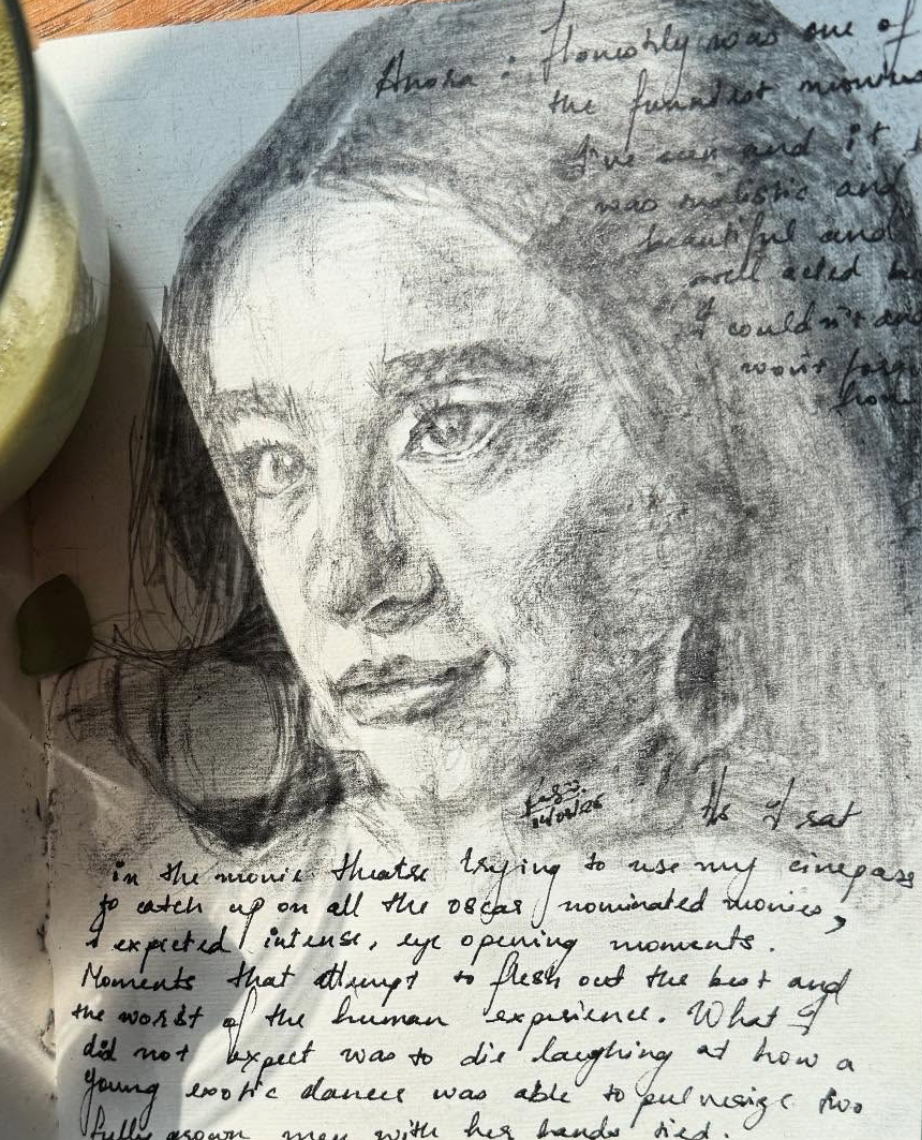 Anora : Honestly was one of
the funniest movies
I've seen and it
was realistic and
beautiful and
well acted
I couldn't
won't
As I sat
in the movie theatre trying to use my cinepass
to catch up on all the oscar nominated movies,
I expected intense, eye opening moments.
Moments that attempt to flesh out the best and
the worst of the human experience. What I
did not expect was to die laughing at how a
young exotic dancer was able to pulverize two
fully grown men with her hands tied.